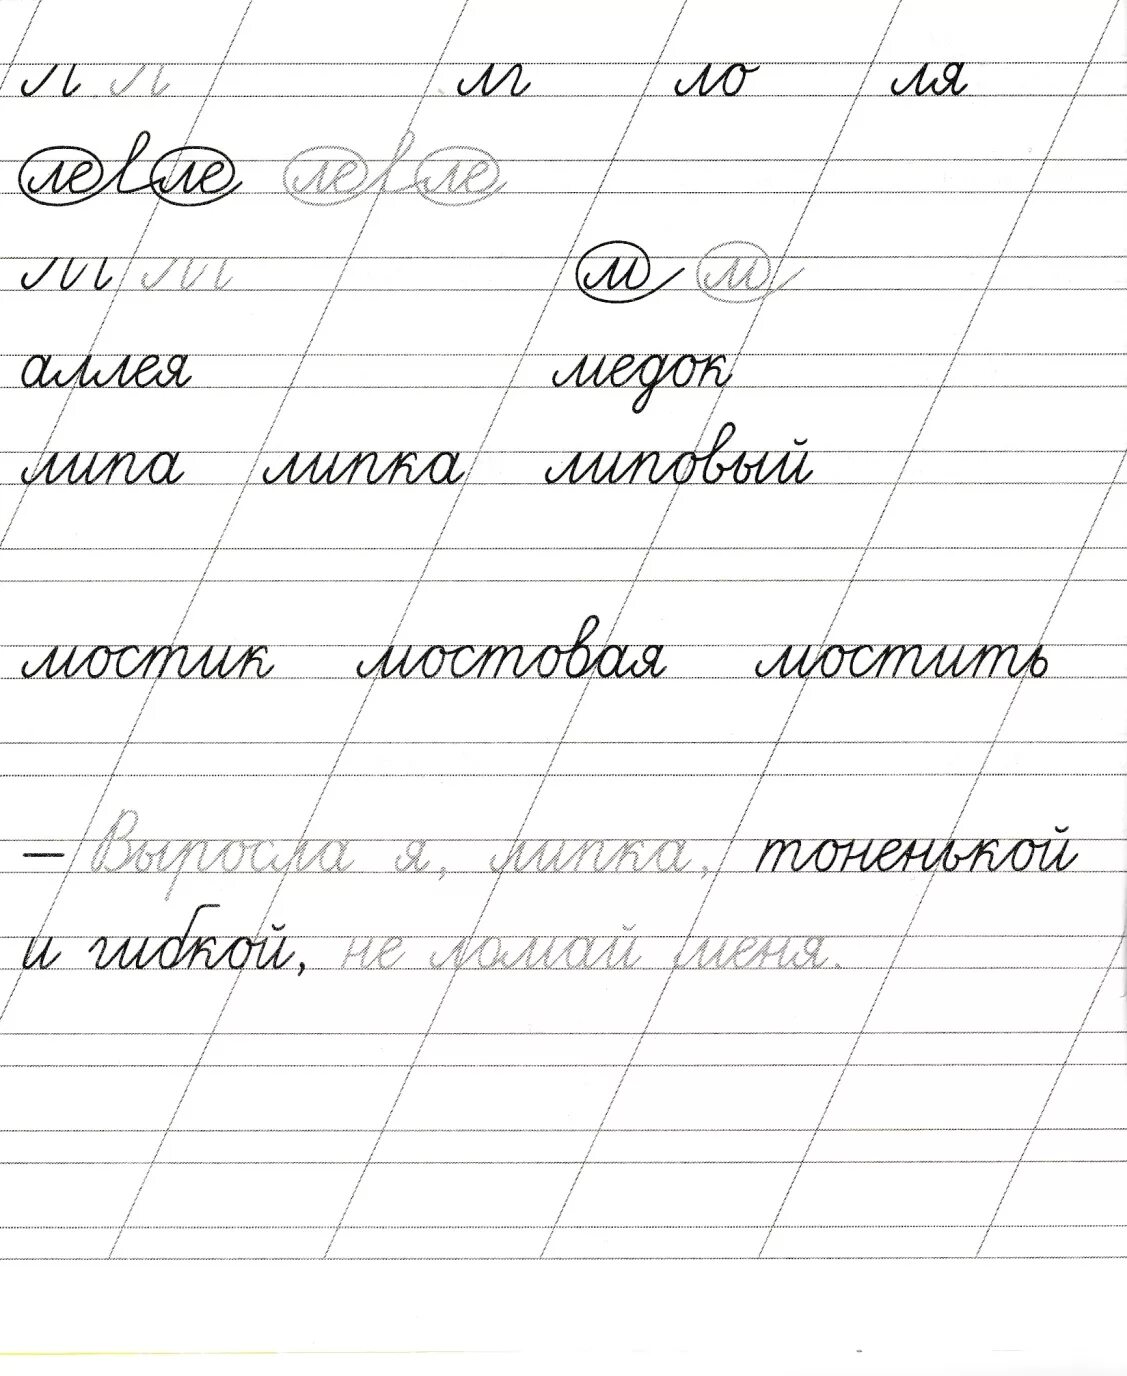 л л лг ло ля
ле ле ле ле
м м м м
аллея медок
липа липка липовый
мостик мостовая мостить
– Выросла я, липка, тоненькой
и гибкой, не ломай меня.